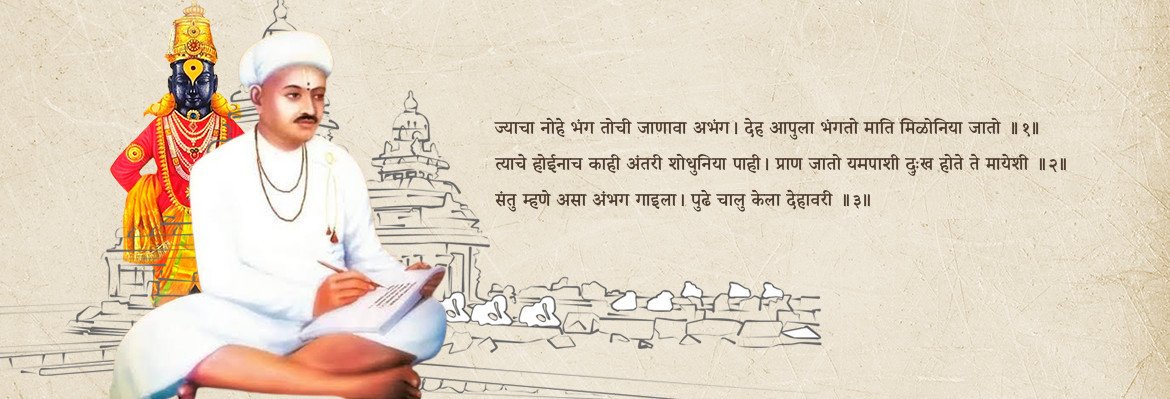 ज्याचा नोहे भंग तोची जाणावा अभंग। देह आपुला भंगतो माति मिळोनिया जातो ॥१॥
त्याचे होईनाच काही अंतरी शोधुनिया पाही। प्राण जातो यमपाशी दुःख होते ते मायेशी ॥२॥
संतु म्हणे असा अंभग गाइला। पुढे चालु केला देहावरी ॥३॥